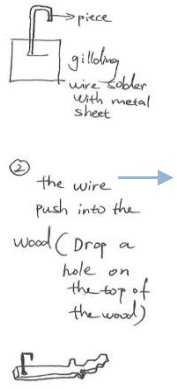 piece
gillding
wire solder
with metal
sheet
②
the wire
push into the
wood (Drop a
hole on
the top of
the wood)